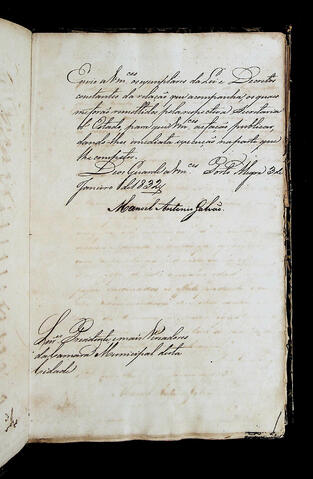 Envio a Vm.ces os exemplares da Lei e Decretos
constantes da relação que acompanha, os quaes
me forão remettidos pela respectiva Secretaria
d'Estado, para que Vm.ces os fação publicar,
dando-lhes immediata execução na parte que
lhe competir.
Deos Guarde a Vm.ces Porto Alegre 3 de
Janeiro de 1832
Manoel Antonio Galvão.
Snr.es Presidente e mais Vereadores
da Camara Municipal desta
Cidade